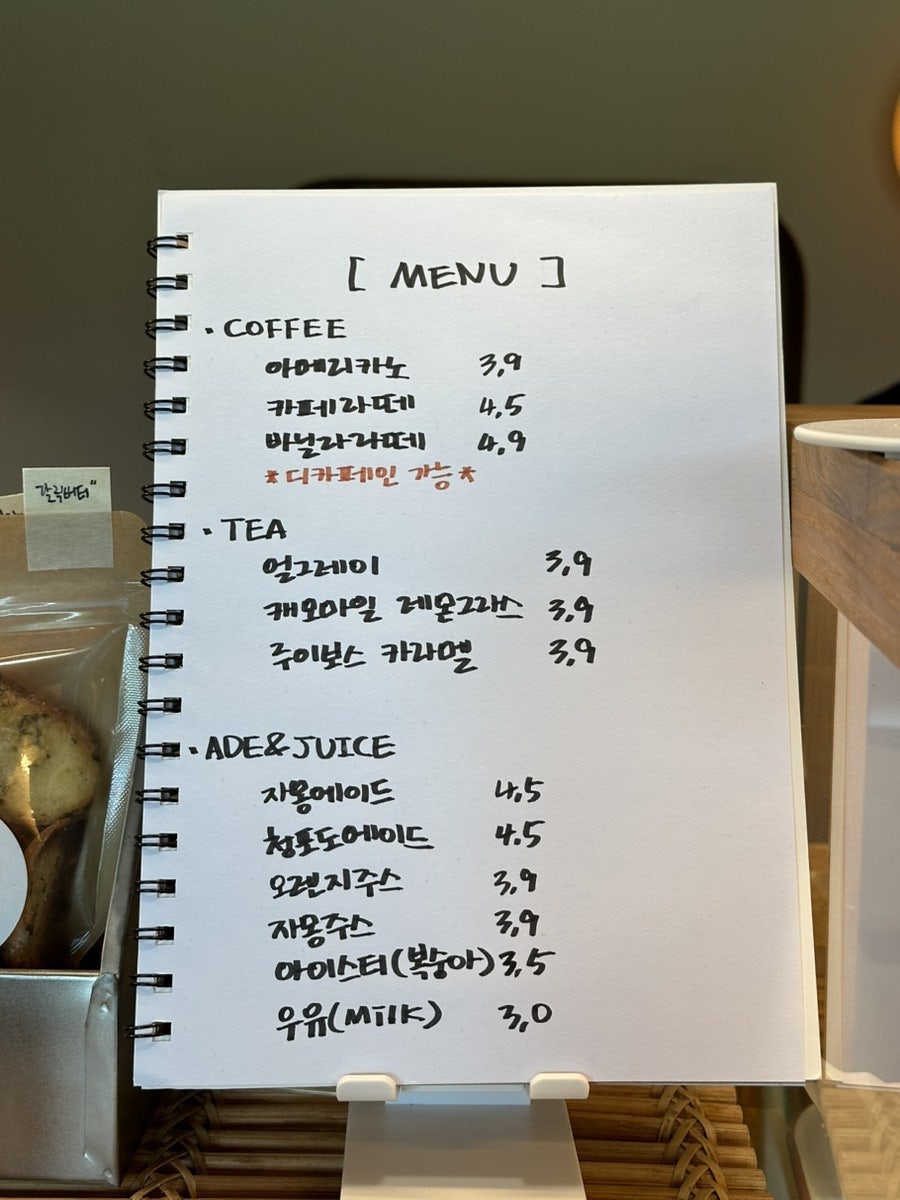 [ MENU ]
· COFFEE
아메리카노 3,9
카페라떼 4,5
바닐라라떼 4,9
*디카페인 가능*
· TEA
얼그레이 3,9
캐모마일 레몬그라스 3,9
루이보스 카라멜 3,9
· ADE&JUICE
자몽에이드 4,5
청포도에이드 4,5
오렌지주스 3,9
자몽주스 3,9
아이스티(복숭아) 3,5
우유(Milk) 3,0
갈릭버터"